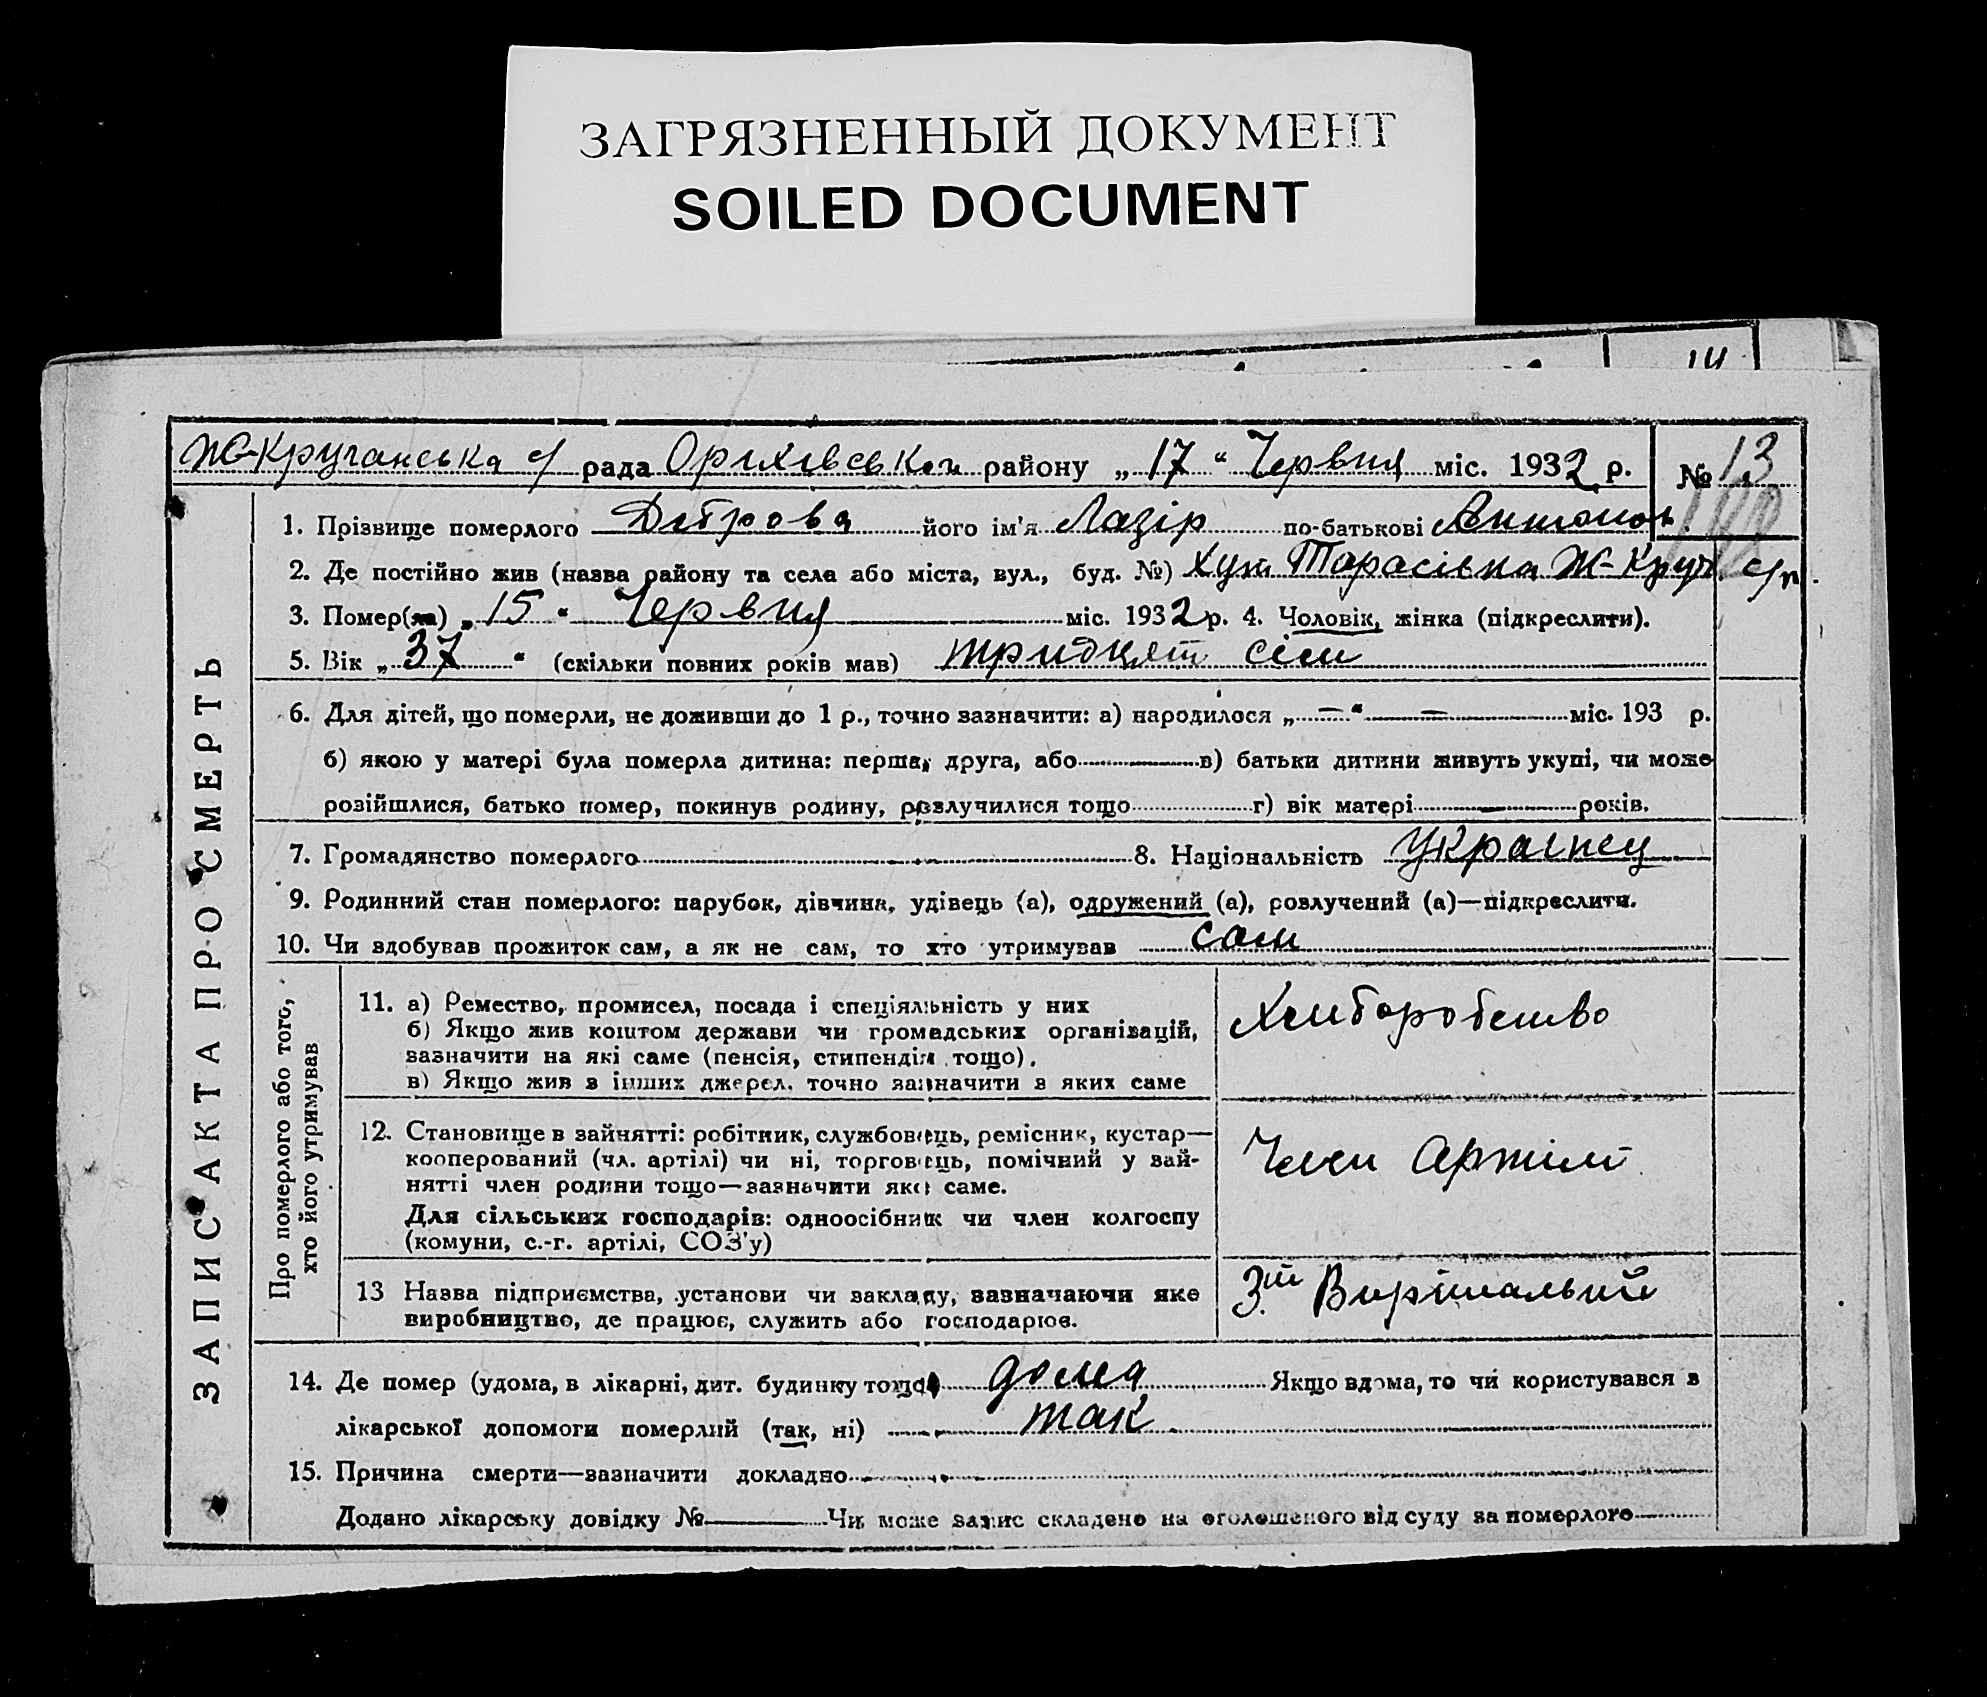 ЗАГРЯЗНЕННЫЙ ДОКУМЕНТ
SOILED DOCUMENT
14
Ж-Кручанська с/ рада Оріхівськ. району „17“ Червня міс. 1932 р. № 13
1. Прізвище померлого Дітрова його ім'я Лазір по-батькові Антонов.
2. Де постійно жив (назва району та села або міста, вул., буд. №) Хут Тарасівка Ж-Круч. с/р.
3. Помер(ла) „15“ Червня міс. 1932 р. 4. Чоловік, жінка (підкреслити).
5. Вік „37“ (скільки повних років мав) тридцят сім
6. Для дітей, що померли, не доживши до 1 р., точно зазначити: а) народилося „—“ — міс. 193 р.
б) якою у матері була померла дитина: перша, друга, або — в) батьки дитини живуть укупі, чи може
розійшлися, батько помер, покинув родину, розлучилися тощо г) вік матері — років.
7. Громадянство померлого 8. Національність Українец
9. Родинний стан померлого: парубок, дівчина, удівець (а), одружений (а), розлучений (а)—підкреслити.
10. Чи здобував прожиток сам, а як не сам, то хто утримував сам
ЗАПИС АКТА ПРО СМЕРТЬ
Про померлого або того,
хто його утримував
11. а) Ремество, промисел, посада і спеціяльність у них
б) Якщо жив коштом держави чи громадських організацій,
зазначити на які саме (пенсія, стипендія тощо).
в) Якщо жив з інших джерел, точно зазначити з яких саме
Хлиборобство
12. Становище в зайнятті: робітник, службовець, ремісник, кустар—
кооперований (чл. артілі) чи ні, торговець, помічний у зай-
нятті член родини тощо—зазначити яке саме.
Для сільських господарів: одноосібник чи член колгоспу
(комуни, с.-г. артілі, СОЗ'у)
Член Артілі
13 Назва підприємства, установи чи закладу, зазначаючи яке
виробництво, де працює, служить або господарює.
3й Вирішальний
14. Де помер (удома, в лікарні, дит. будинку тощо) дома Якщо вдома, то чи користувався з
лікарської допомоги померлий (так, ні) так
15. Причина смерти—зазначити докладно
Додано лікарську довідку № — Чи може запис складено на оголошеного від суду за померлого